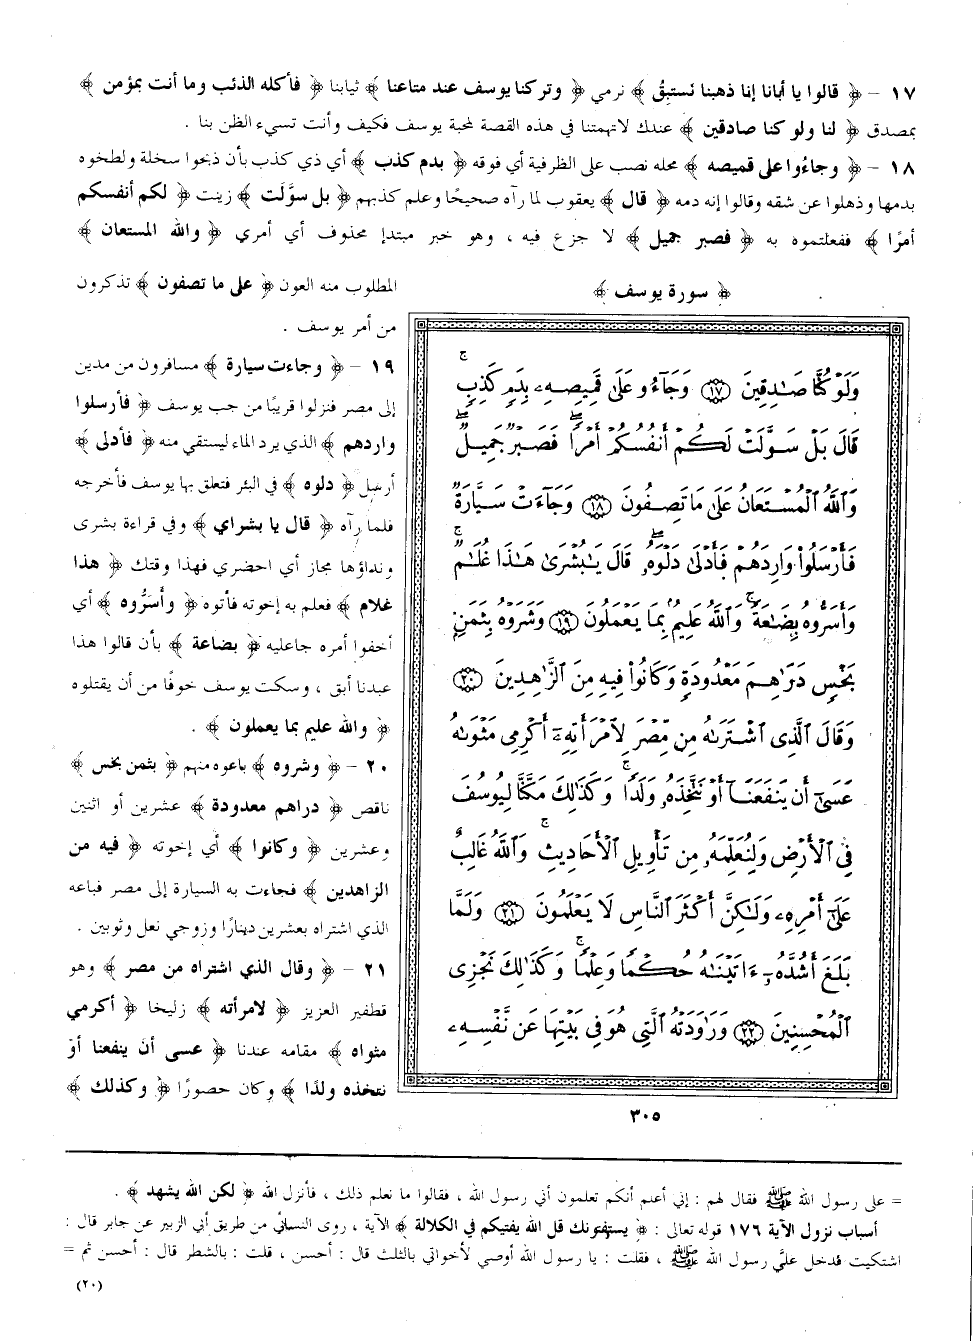 ١٧ - ﴿ قالوا يا أبانا إنا ذهبنا نستبق ﴾ نرمي ﴿ وتركنا يوسف عند متاعنا ﴾ ثيابنا ﴿ فأكله الذئب وما أنت بمؤمن ﴾
بمصدق ﴿ لنا ولو كنا صادقين ﴾ عندك لاتهمتنا في هذه القصة لمحبة يوسف فكيف وأنت تسيء الظن بنا .
١٨ - ﴿ وجاءوا على قميصه ﴾ محله نصب على الظرفية أي فوقه ﴿ بدم كذب ﴾ أي ذي كذب بأن ذبحوا سخلة ولطخوه
بدمها وذهلوا عن شقه وقالوا إنه دمه ﴿ قال ﴾ يعقوب لما رآه صحيحًا وعلم كذبهم ﴿ بل سوَّلَت ﴾ زينت ﴿ لكم أنفسكم
أمرًا ﴾ ففعلتموه به ﴿ فصبر جميل ﴾ لا جزع فيه ، وهو خبر مبتدإ محذوف أي أمري ﴿ والله المستعان ﴾
المطلوب منه العون ﴿ على ما تصفون ﴾ تذكرون
من أمر يوسف .
١٩ - ﴿ وجاءت سيارة ﴾ مسافرون من مدين
إلى مصر فنزلوا قريبًا من جب يوسف ﴿ فأرسلوا
واردهم ﴾ الذي يرد الماء ليستقي منه ﴿ فأدلى ﴾
أرسل ﴿ دلوه ﴾ في البئر فتعلق بها يوسف فأخرجه
فلما رآه ﴿ قال يا بشراي ﴾ وفي قراءة بشرى
ونداؤها مجاز أي احضري فهذا وقتك ﴿ هذا
غلام ﴾ فعلم به إخوته فأتوه ﴿ وأسرُّوه ﴾ أي
أخفوا أمره جاعليه ﴿ بضاعة ﴾ بأن قالوا هذا
عبدنا أبق ، وسكت يوسف خوفًا من أن يقتلوه
﴿ والله عليم بما يعملون ﴾ .
٢٠ - ﴿ وشروه ﴾ باعوه منهم ﴿ بثمن بخس ﴾
ناقص ﴿ دراهم معدودة ﴾ عشرين أو اثنين
وعشرين ﴿ وكانوا ﴾ أي إخوته ﴿ فيه من
الزاهدين ﴾ فجاءت به السيارة إلى مصر فباعه
الذي اشتراه بعشرين دينارًا وزوجي نعل وثوبين .
٢١ - ﴿ وقال الذي اشتراه من مصر ﴾ وهو
قطفير العزيز ﴿ لامرأته ﴾ زليخا ﴿ أكرمي
مثواه ﴾ مقامه عندنا ﴿ عسى أن ينفعنا أو
نتخذه ولدًا ﴾ وكان حصورًا ﴿ وكذلك ﴾
﴿ سورة يوسف ﴾
وَلَوْ كُنَّا صَـٰدِقِينَ ١٧ وَجَآءُو عَلَىٰ قَمِيصِهِۦ بِدَمٍ كَذِبٍ ۚ
قَالَ بَلْ سَوَّلَتْ لَكُمْ أَنفُسُكُمْ أَمْرًا ۖ فَصَبْرٌ جَمِيلٌ ۖ
وَٱللَّهُ ٱلْمُسْتَعَانُ عَلَىٰ مَا تَصِفُونَ ١٨ وَجَآءَتْ سَيَّارَةٌ
فَأَرْسَلُوا۟ وَارِدَهُمْ فَأَدْلَىٰ دَلْوَهُۥ ۖ قَالَ يَـٰبُشْرَىٰ هَـٰذَا غُلَـٰمٌ ۚ
وَأَسَرُّوهُ بِضَـٰعَةً ۚ وَٱللَّهُ عَلِيمٌۢ بِمَا يَعْمَلُونَ ١٩ وَشَرَوْهُ بِثَمَنٍۭ
بَخْسٍ دَرَٰهِمَ مَعْدُودَةٍ وَكَانُوا۟ فِيهِ مِنَ ٱلزَّٰهِدِينَ ٢٠
وَقَالَ ٱلَّذِى ٱشْتَرَىٰهُ مِن مِّصْرَ لِٱمْرَأَتِهِۦٓ أَكْرِمِى مَثْوَىٰهُ
عَسَىٰٓ أَن يَنفَعَنَآ أَوْ نَتَّخِذَهُۥ وَلَدًا ۚ وَكَذَٰلِكَ مَكَّنَّا لِيُوسُفَ
فِى ٱلْأَرْضِ وَلِنُعَلِّمَهُۥ مِن تَأْوِيلِ ٱلْأَحَادِيثِ ۚ وَٱللَّهُ غَالِبٌ
عَلَىٰٓ أَمْرِهِۦ وَلَـٰكِنَّ أَكْثَرَ ٱلنَّاسِ لَا يَعْلَمُونَ ٢١ وَلَمَّا
بَلَغَ أَشُدَّهُۥٓ ءَاتَيْنَـٰهُ حُكْمًا وَعِلْمًا ۚ وَكَذَٰلِكَ نَجْزِى
ٱلْمُحْسِنِينَ ٢٢ وَرَٰوَدَتْهُ ٱلَّتِى هُوَ فِى بَيْتِهَا عَن نَّفْسِهِۦ
٣٠٥
= على رسول الله ﷺ فقال لهم : إني أعلم أنكم تعلمون أني رسول الله ، فقالوا ما نعلم ذلك ، فأنزل الله ﴿ لكن الله يشهد ﴾ .
أسباب نزول الآية ١٧٦ قوله تعالى : ﴿ يستفتونك قل الله يفتيكم في الكلالة ﴾ الآية ، روى النسائي من طريق أبي الزبير عن جابر قال :
اشتكيت فدخل عليَّ رسول الله ﷺ ، فقلت : يا رسول الله أوصي لأخواتي بالثلث قال : أحسن ، قلت : بالشطر قال : أحسن ثم =
(٢٠)